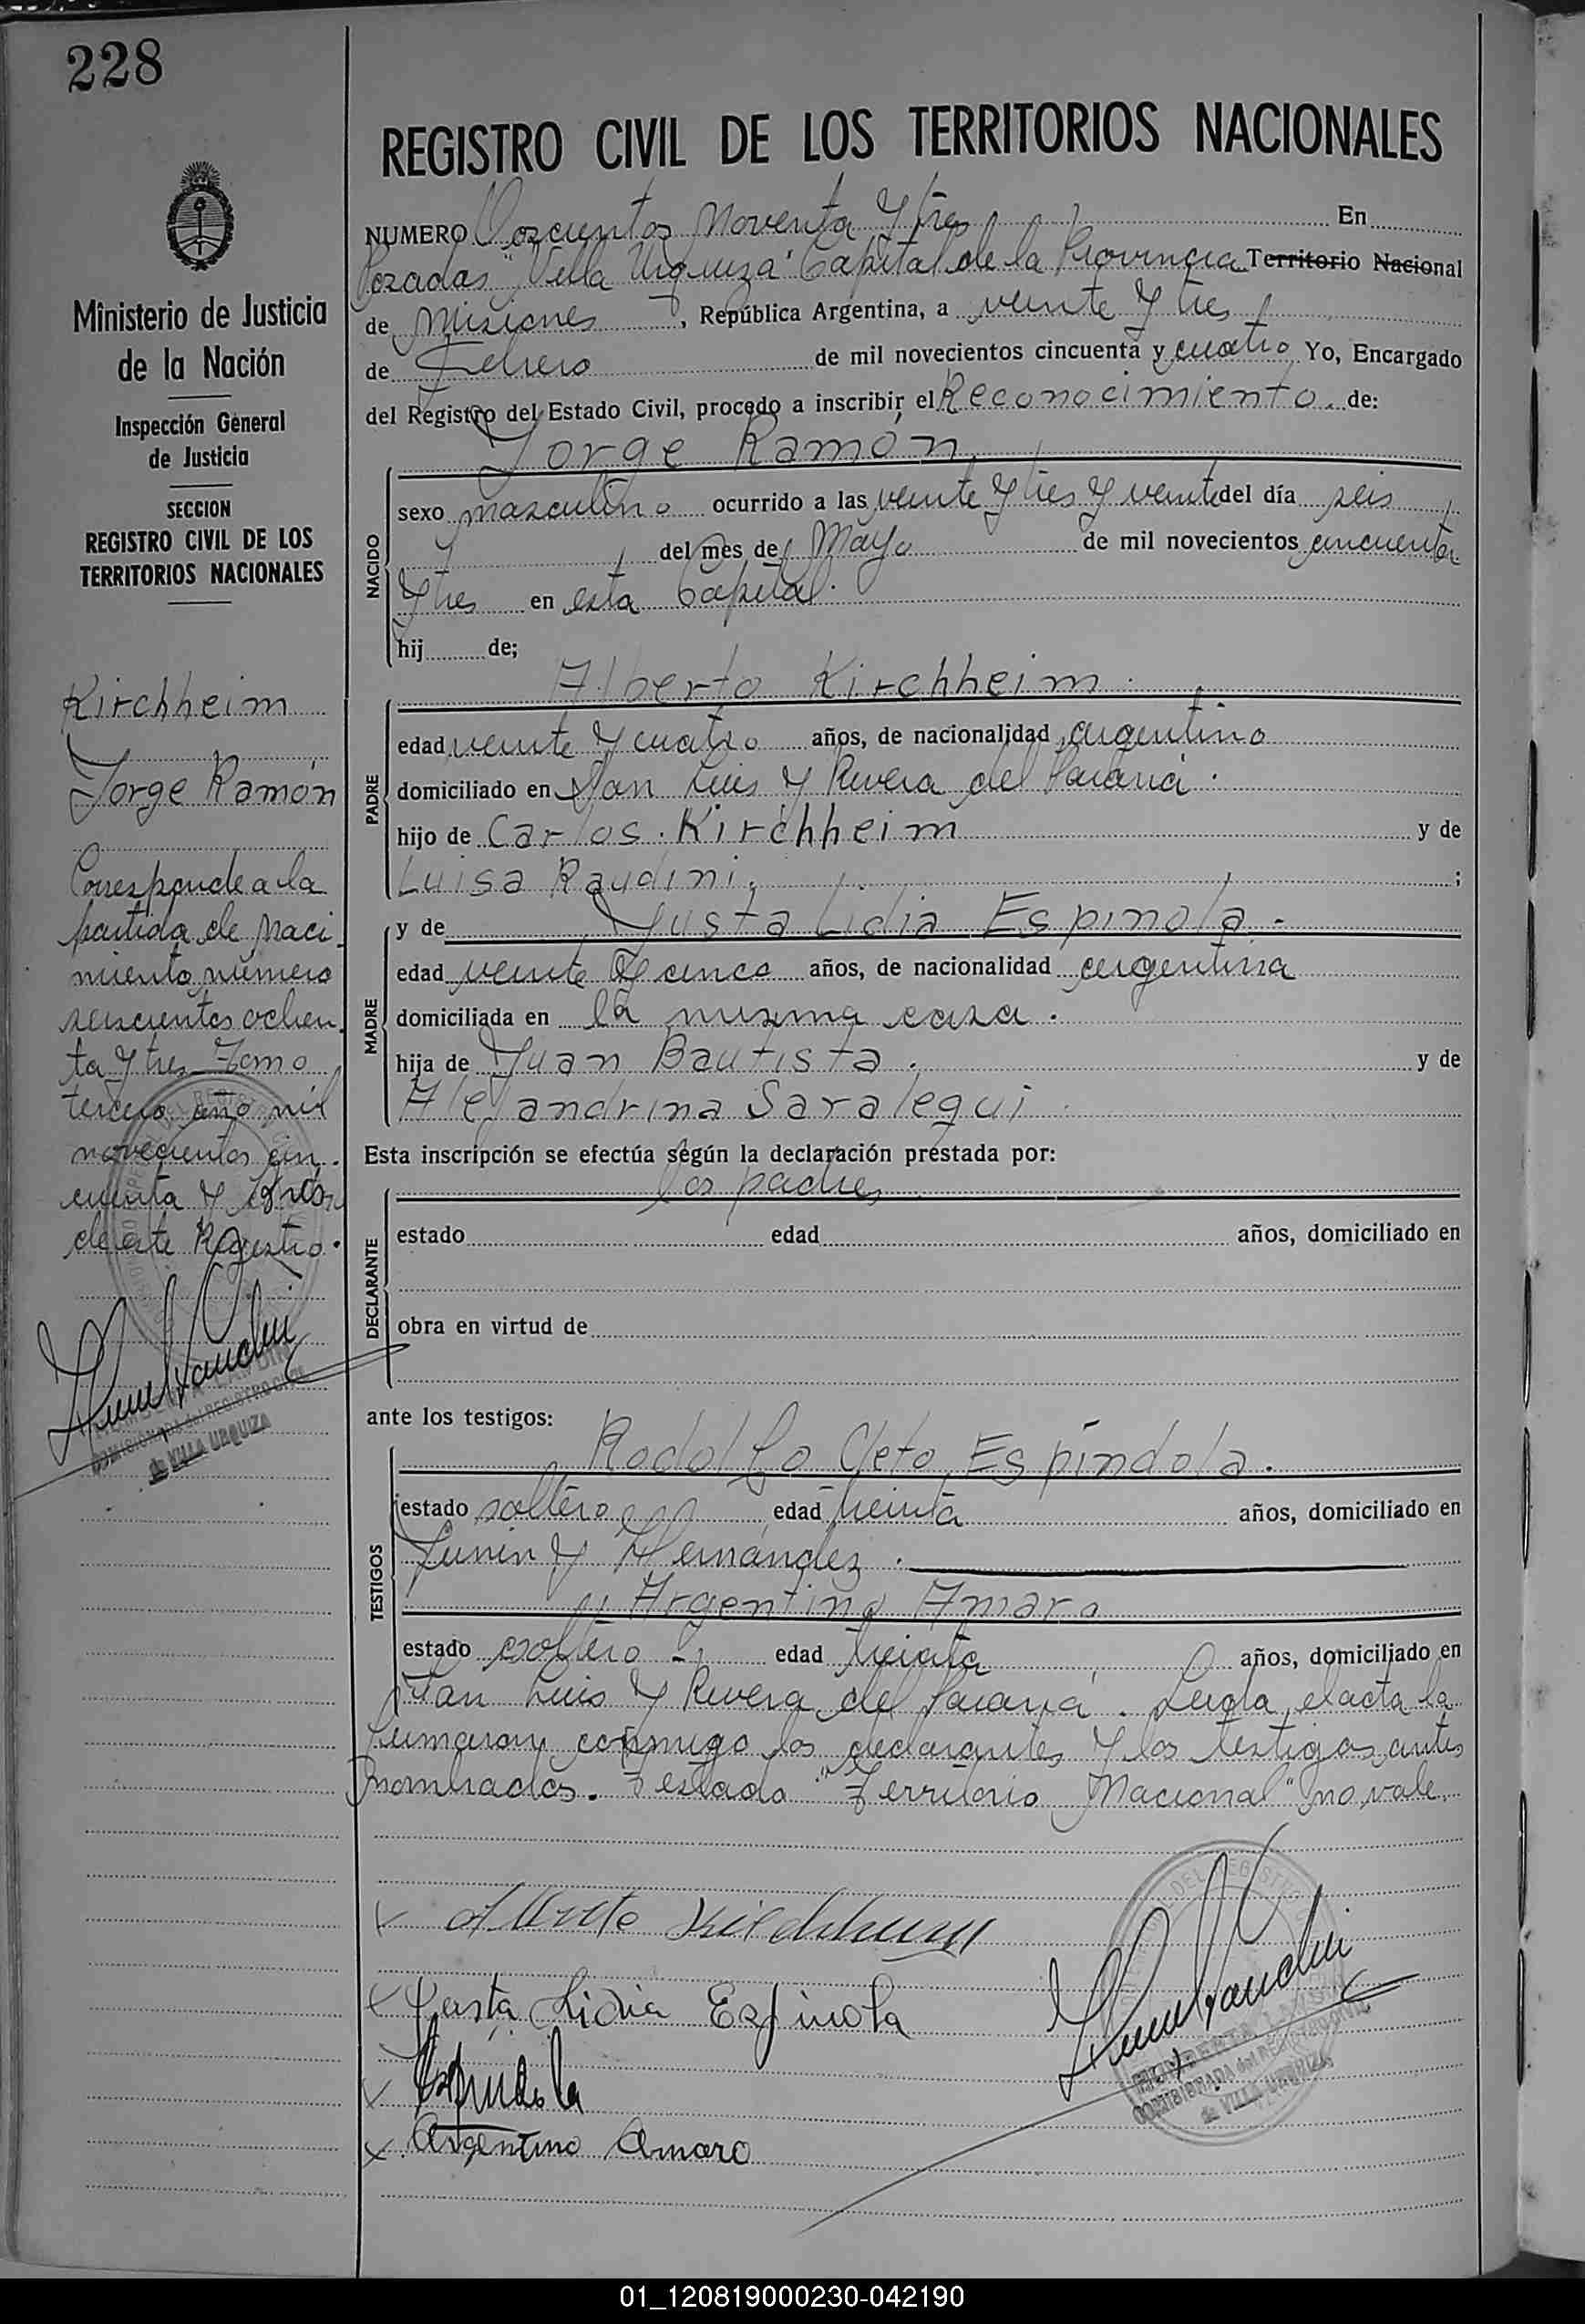 228
Ministerio de Justicia
de la Nación
Inspección General
de Justicia
SECCION
REGISTRO CIVIL DE LOS
TERRITORIOS NACIONALES
Kirchheim
Jorge Ramón
Corresponde a la
partida de naci
miento número
seiscientos ochen
ta y tres Tomo
tercero año mil
novecientos cin
cuenta y tres
de este Registro.
COMISIONADA del REGISTRO CIVIL
de VILLA URQUIZA
REGISTRO CIVIL DE LOS TERRITORIOS NACIONALES
NUMERO Doscientos Noventa y tres En
Posadas "Villa Urquiza" Capital de la Provincia Territorio Nacional
de Misiones, República Argentina, a veinte y tres
de Febrero de mil novecientos cincuenta y cuatro Yo, Encargado
del Registro del Estado Civil, procedo a inscribir el Reconocimiento. de:
Jorge Ramón
NACIDO
sexo masculino ocurrido a las veinte y tres y veinte del día seis
del mes de Mayo de mil novecientos cincuenta
y tres en esta Capital.
hij de;
Alberto Kirchheim.
PADRE
edad veinte y cuatro años, de nacionalidad argentino
domiciliado en San Luis y Rivera del Paraná.
hijo de Carlos. Kirchheim y de
Luisa Raudini. ;
y de Justa Lidia Espinola.-
MADRE
edad veinte y cinco años, de nacionalidad argentina
domiciliada en la misma casa.
hija de Juan Bautista. y de
Alejandrina Saralegui.
Esta inscripción se efectúa según la declaración prestada por:
los padres
DECLARANTE
estado edad años, domiciliado en
obra en virtud de
ante los testigos:
Rodolfo Cleto Espíndola.
TESTIGOS
estado soltero edad treinta años, domiciliado en
Junin y Hernández.
y Argentino Amaro
estado soltero - edad treinta años, domiciliado en
San Luis y Rivera del Paraná. Leida el acta la
firmaron conmigo los declarantes y los testigos antes
nombrados. Testado "Territorio Nacional" no vale.
x Alberto Kirchheim
x Justa Lidia Espinola
x Espindola
x Argentino Amaro
COMISIONADA del REGISTRO CIVIL
de VILLA URQUIZA
01_120819000230-042190